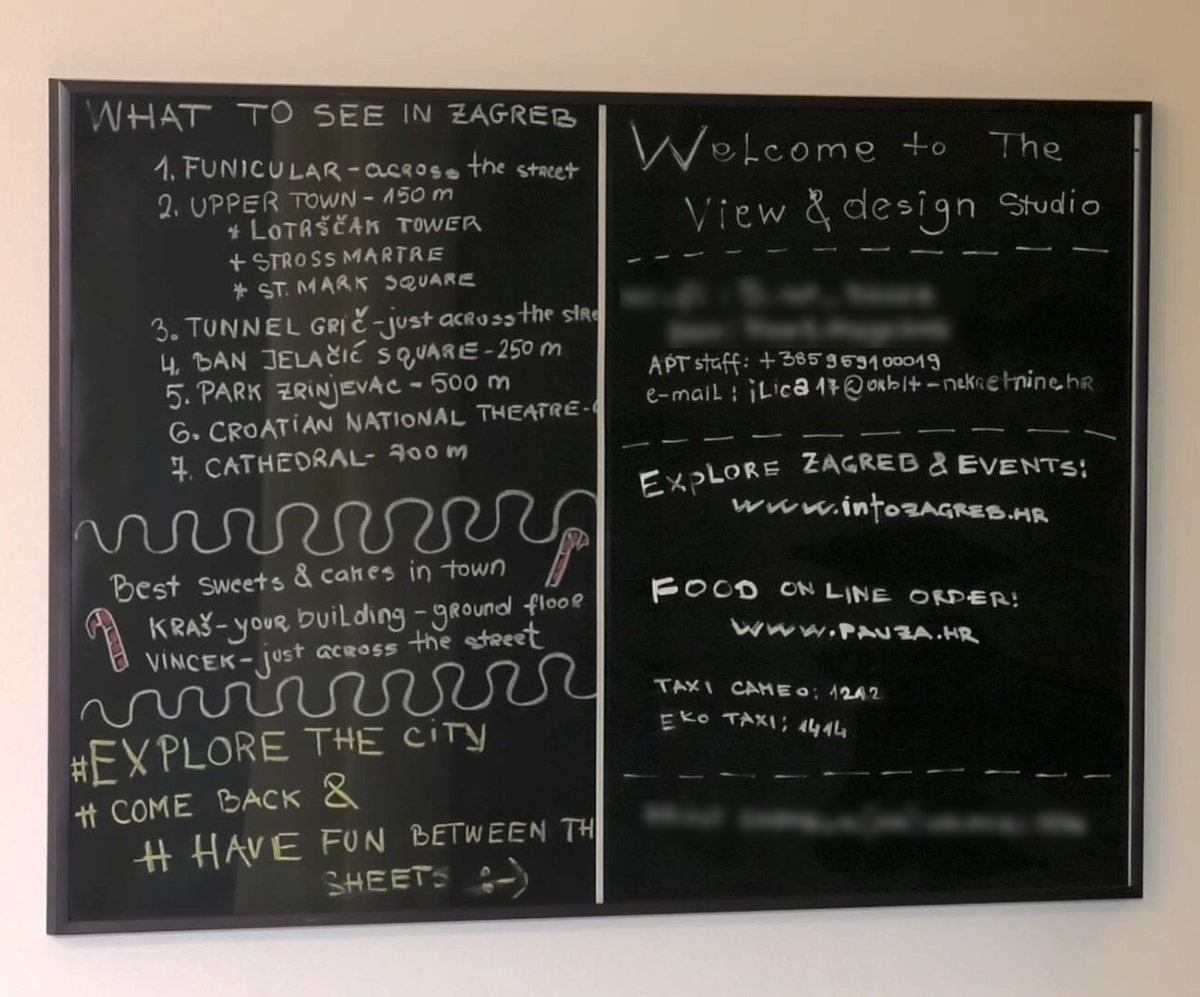 WHAT TO SEE IN ZAGREB
1. FUNICULAR - across the street
2. UPPER TOWN - 150 m
* LOTRŠČAK TOWER
+ STROSSMARTRE
* ST. MARK SQUARE
3. TUNNEL GRIČ - just across the stre
4. BAN JELAČIĆ SQUARE - 250 m
5. PARK ZRINJEVAC - 500 m
6. CROATIAN NATIONAL THEATRE -
7. CATHEDRAL - 700 m
Best sweets & cakes in town
KRAŠ - your building - ground floor
VINCEK - just across the street
#EXPLORE THE CITY
# COME BACK &
# HAVE FUN BETWEEN TH
SHEETS :-)
Welcome to The
View & design Studio
APT staff: +385959100019
e-mail: ilica17@orbit-nekretnine.hr
EXPLORE ZAGREB & EVENTS!
www.infoZAGREB.HR
FOOD ON LINE ORDER!
WWW.PAUZA.HR
TAXI CAMEO: 1212
EKO TAXI: 1414